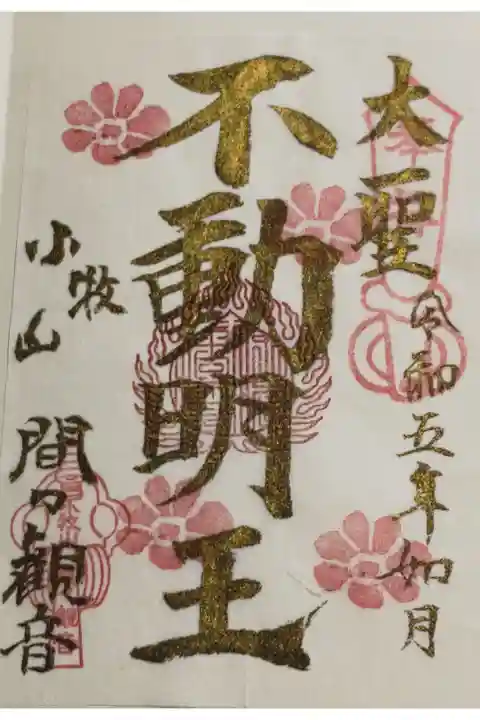 奉拝
大聖
令和五年如月
不動明王
小牧山
間々観音